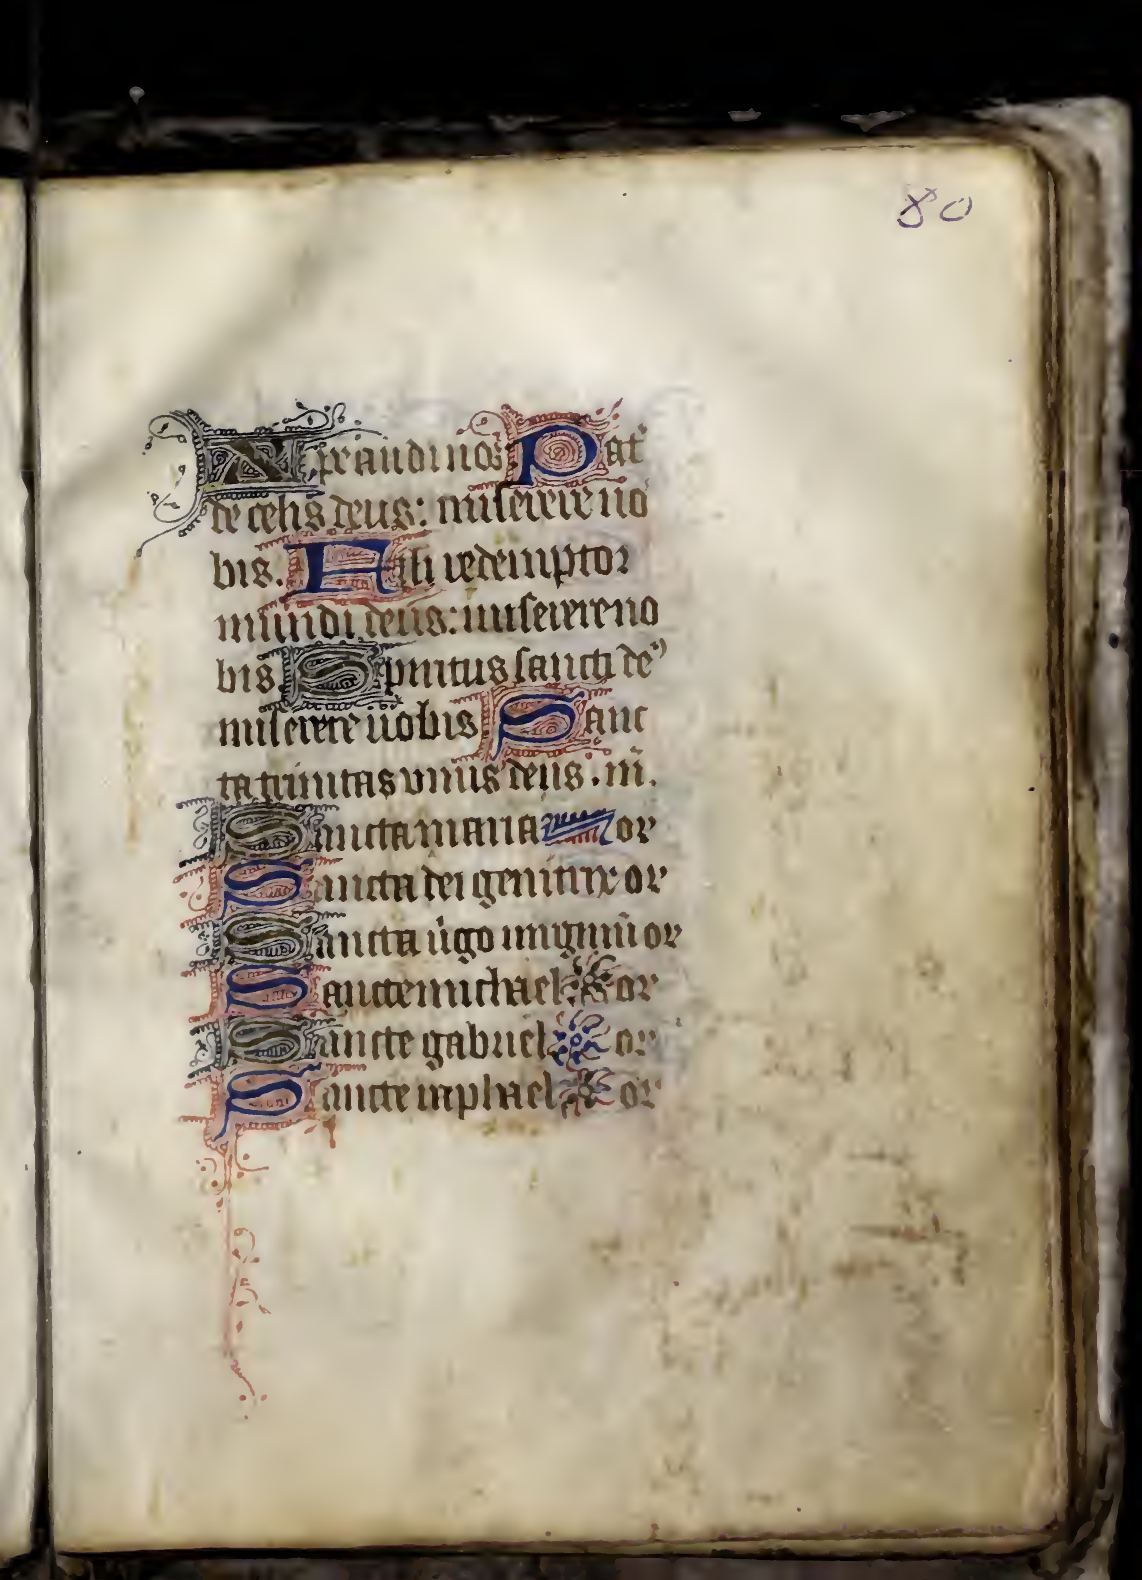 80
Xpe audi nos Pat̾
de celis deus: miserere no
bis. Fili redemptor
mundi deus: miserere no
bis Spiritus sancti de⁹
miserere nobis Sanc
ta trinitas vnus deus . m̄.
Sancta maria or
Sancta dei genitrix or
Sancta u̾go uirginū or
Sancte michael or
Sancte gabriel or
Sancte raphael or